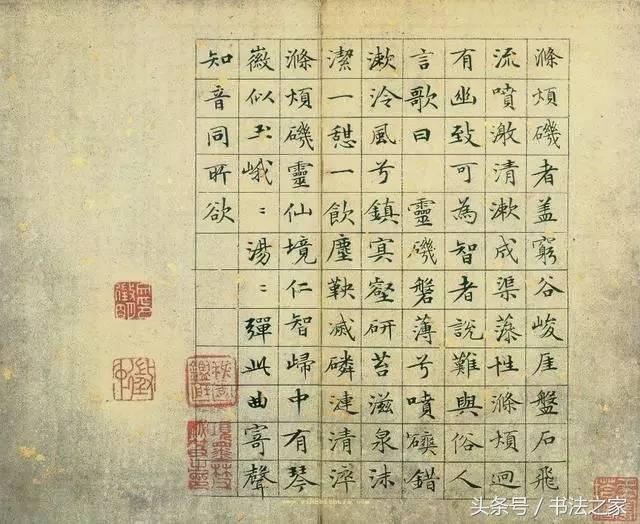 滌煩磯者盖窮谷峻厓盤石飛
流噴激清漱成渠藻性滌煩迴
有幽致可為智者說難與俗人
言歌曰 靈磯磐薄兮噴礐錯
漱泠風兮鎮冥壑研苔滋泉沫
潔一憇一飲塵鞅滅磷漣清淬
滌煩磯靈仙境仁智歸中有琴
徽似玉峨〻湯〻彈此曲寄聲
知音同所欲
头条号 / 书法之家